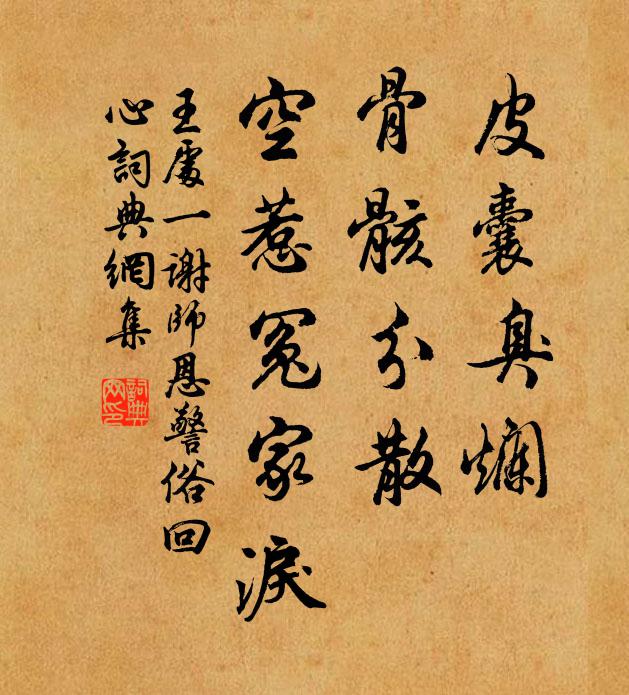 皮囊臭爛
骨骸分散
空惹冤家淚
王處一謝師恩警俗回
心詞典網集
詞典
网印